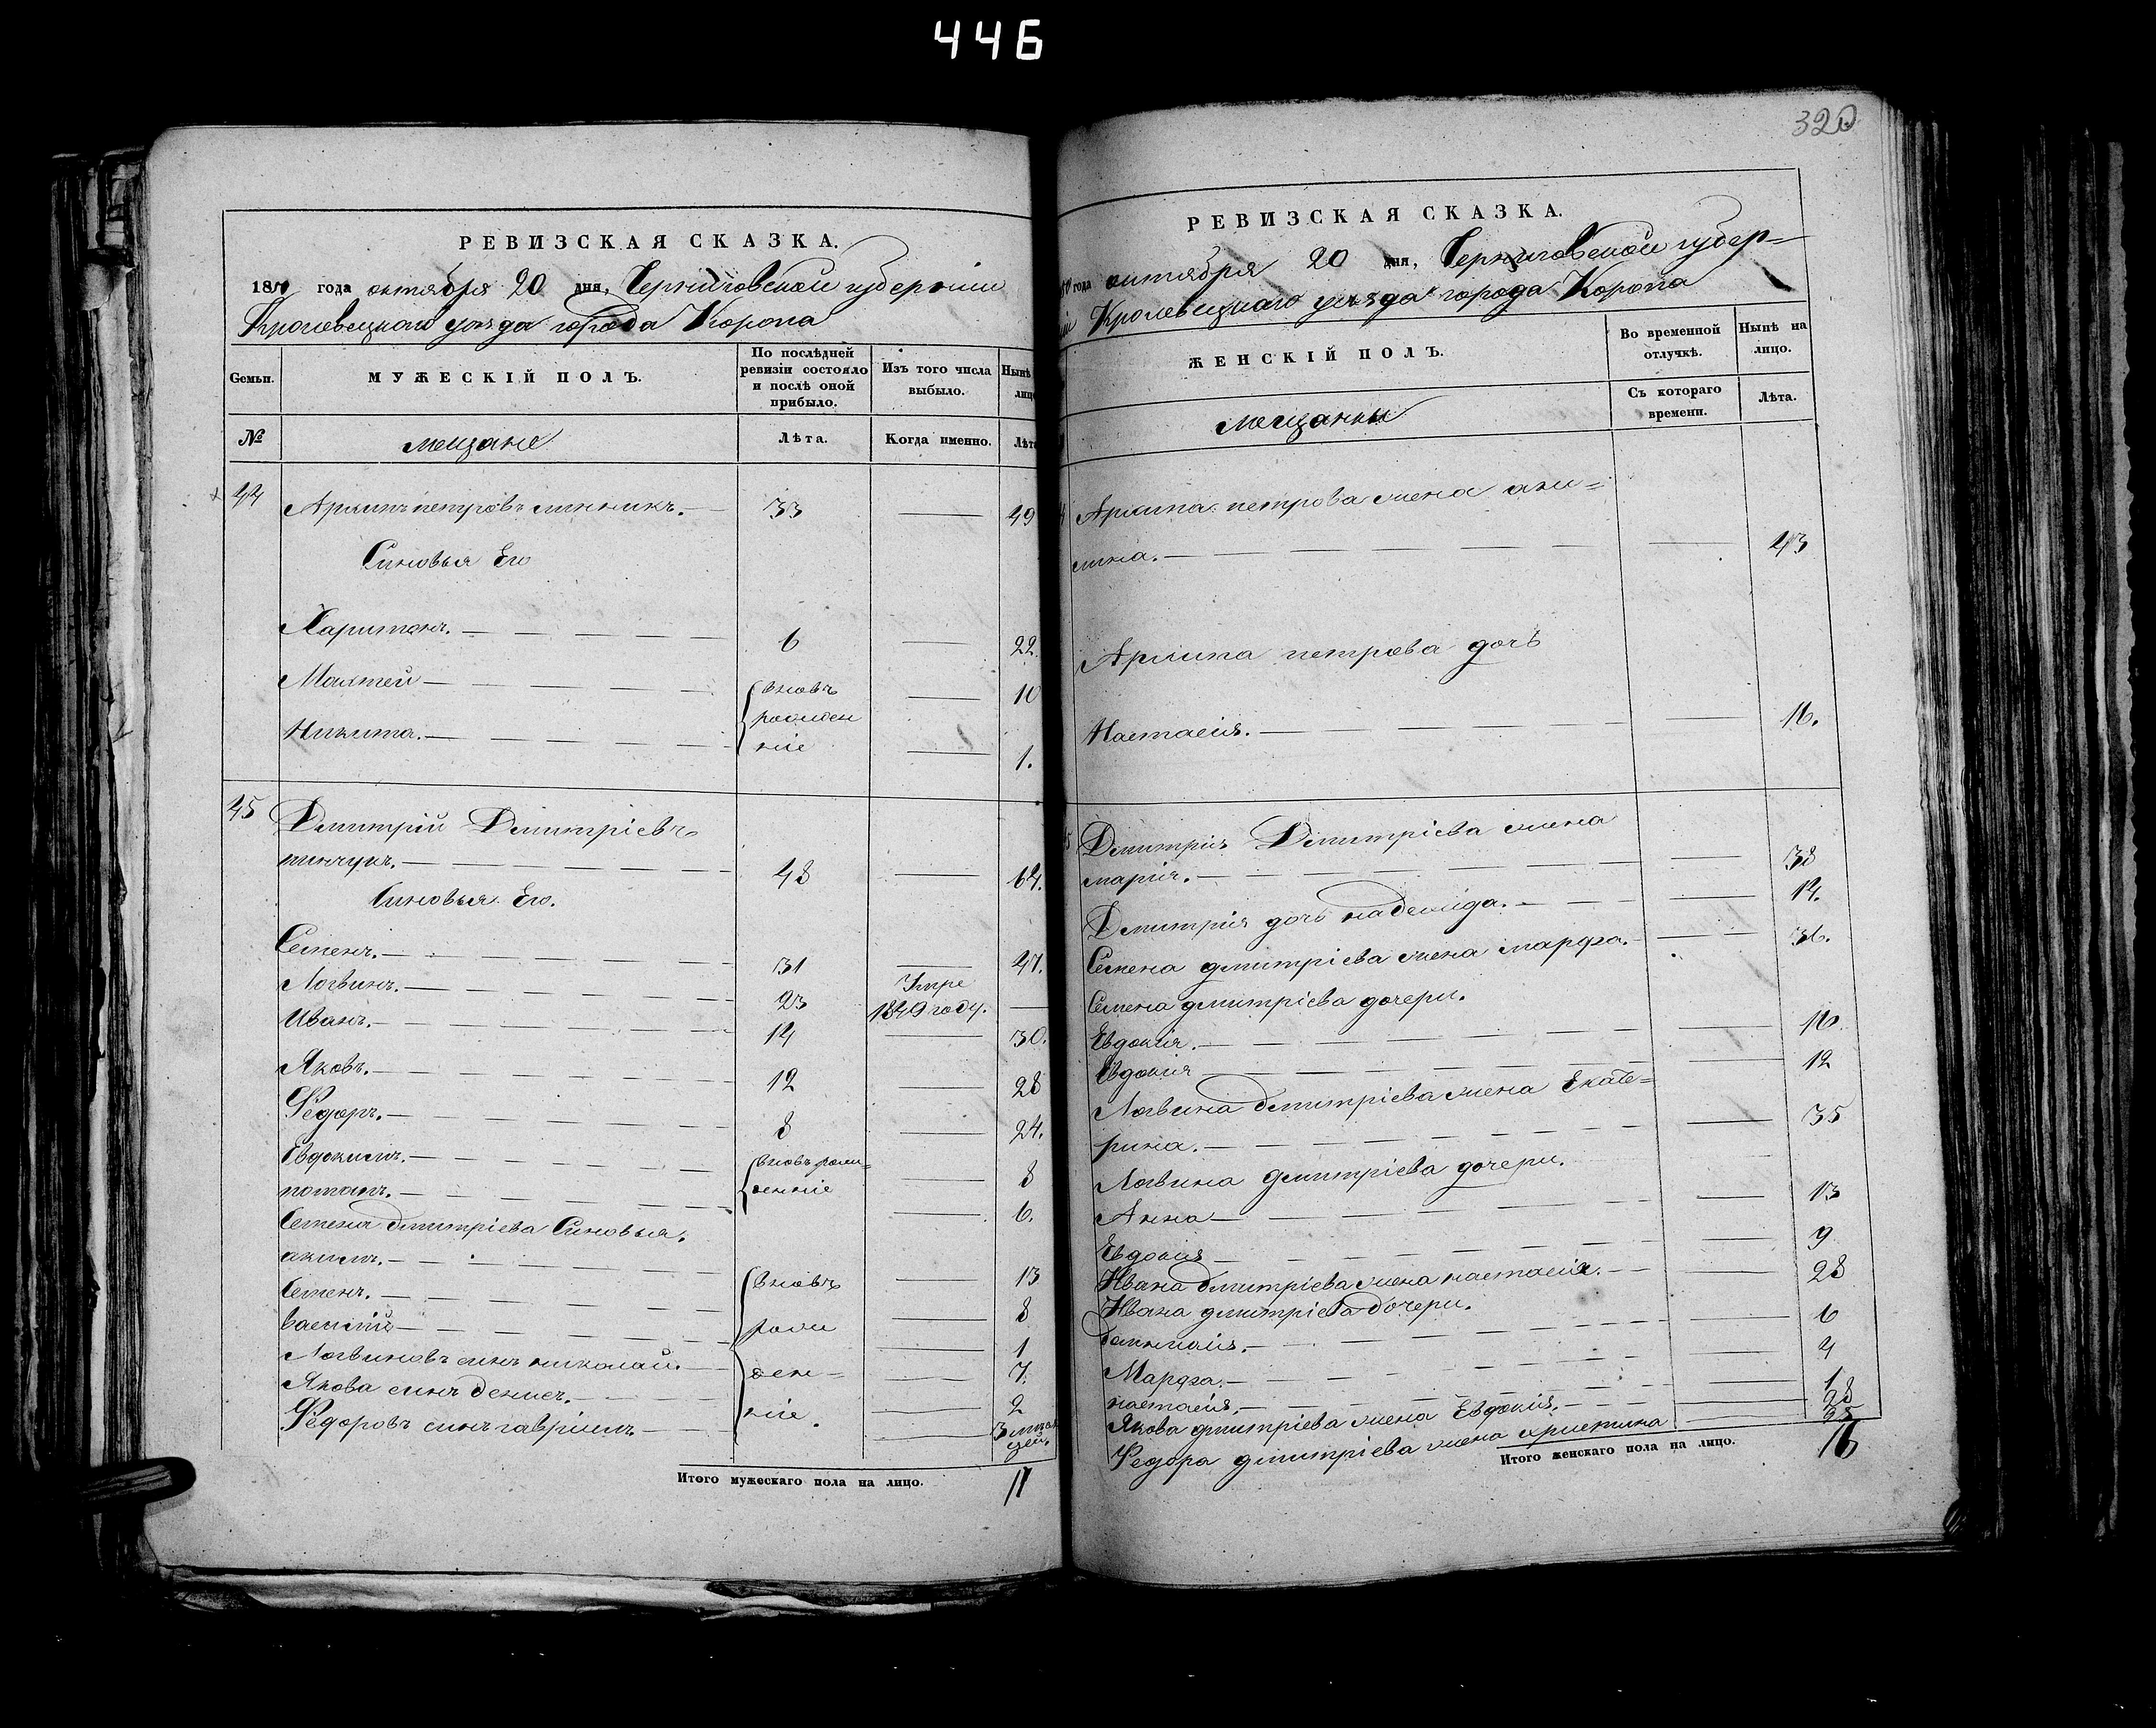 446
РЕВИЗСКАЯ СКАЗКА.
1850 года октября 20 дня, Черниговской губерніи
Кролевецкаго уѣзда города Коропа
Семьи.
МУЖЕСКІЙ ПОЛЪ.
По послѣдней ревизіи состояло и послѣ оной прибыло.
Изъ того числа выбыло.
Нынѣ лицо
№
мещане
Лѣта.
Когда именно.
Лѣта
44 петровъ линникъ. — 33 — 49
Синовья Его
Харитонъ. — 6 — 22.
Махтей — вновь — 10
рожден
Никита. — ніе — 1.
45 Дмитрій Дмитріевъ
пинчукъ. — 48 — 64.
Синовья Его.
Семенъ. — 31 — 47.
Логвинъ. — 23 Умре 1849 году. —
Иванъ. — 14 — 30.
Яковъ. — 12 — 28
Федоръ. — 8 — 24.
Евдокимъ. — вновь рож= — 8
потапъ. — денніе — 6.
Семена дмитріева Синовья.
акимъ. — вновь — 13
Семенъ. — — 8
василій — рож — 1
Логвиновъ синъ николай. — ден= — 7.
Якова синъ денисъ. — — 2
Федоровъ синъ гавріилъ — ніе. — 3
Итого мужескаго пола на лицо. 17
320
РЕВИЗСКАЯ СКАЗКА.
года октября 20 дня, Черниговской губер=
Кролевецкаго уѣзда города Коропа
ЖЕНСКІЙ ПОЛЪ.
Во временной отлучкѣ.
Нынѣ на лицо.
мещанки
Съ котораго времени.
Лѣта.
петрова жена аки=
лина. — — 43
петрова дочь
Настасія. — — 16.
Дмитрія Дмитріева жена
марія. — — 38
Дмитрія дочь надежда. — — 14.
Семена дмитріева жена марфа. — — 36.
Семена дмитріева дочери.
Евдокія. — — 16
Евдокія — — 12
Логвина дмитріева жена Екате=
рина. — — 35
Логвина дмитріева дочери.
Анна — — 13
Евдокія — — 9
Ивана дмитріева жена настасія. — — 28
Ивана дмитріева дочери.
домникія. — — 6
Марфа. — — 4
настасія. — — 1
Якова дмитріева жена Евдокія. — — 28
Федора дмитріева жена христина — 23
Итого женскаго пола на лицо. 16